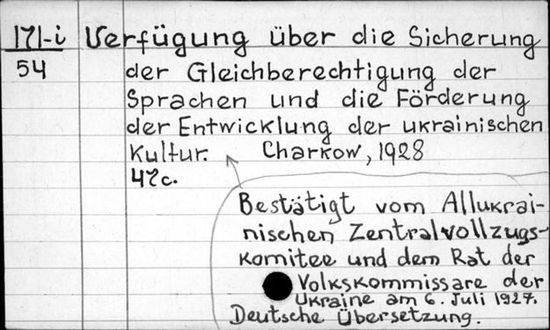 171-i Verfügung über die Sicherung
54 der Gleichberechtigung der
Sprachen und die Förderung
der Entwicklung der ukrainischen
Kultur. Charkow, 1928
47c.
Bestätigt vom Allukrai-
nischen Zentralvollzugs-
komitee und dem Rat der
Volkskommissare der
Ukraine am 6. Juli 1927.
Deutsche Übersetzung.